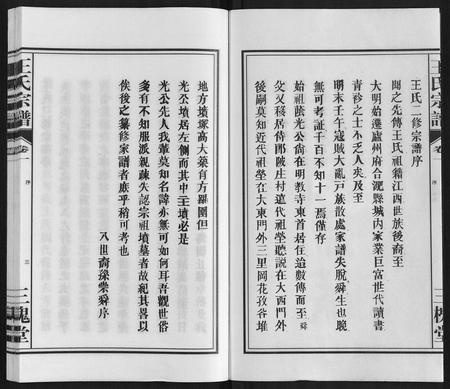 王氏宗譜
卷一
序
三槐堂
王氏二修宗譜序
聞之先傳王氏祖籍江西世族後裔至
大明始遷廬州府合淝縣城內家業巨富世代讀書
青衿之士不乏人矣及至
明末壬午寇賊大亂戶族散處家譜失脫舜生也晚
無可考証千百不知十一焉僅存
始祖蔭光公尙在明教寺東首居住迨數傳而至舜
父又移居傳郎陂庄村遠代祖塋聽說在大西門外
後嗣莫知近代祖塋在大東門外三里岡花孜爸堆
地方墳塚高大塋有方羅圍但
光公墳居左側而其中二墳必是
光公先人我輩莫知名諱亦無可如何耳吾觀世俗
多有不知服派親疎失認宗祖墳墓者故紀其畧以
俟後之纂修家譜者庶乎稍可考也
八世裔孫榮舜序
王氏宗譜
卷一
序
三
三槐堂